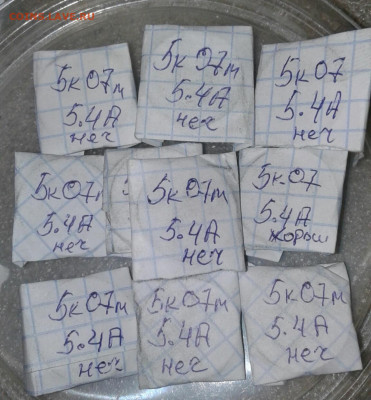 5к07м
5.4А
неч
5к07м
5.4А
неч
5к07
5.4А
неч
5к07м
5.4А
неч
5к07м
5.4А
неч
5к.07
5.4А
жорыш
5к07м
5.4А
неч
5к07м
5.4А
неч
5к07м
5.4А
неч